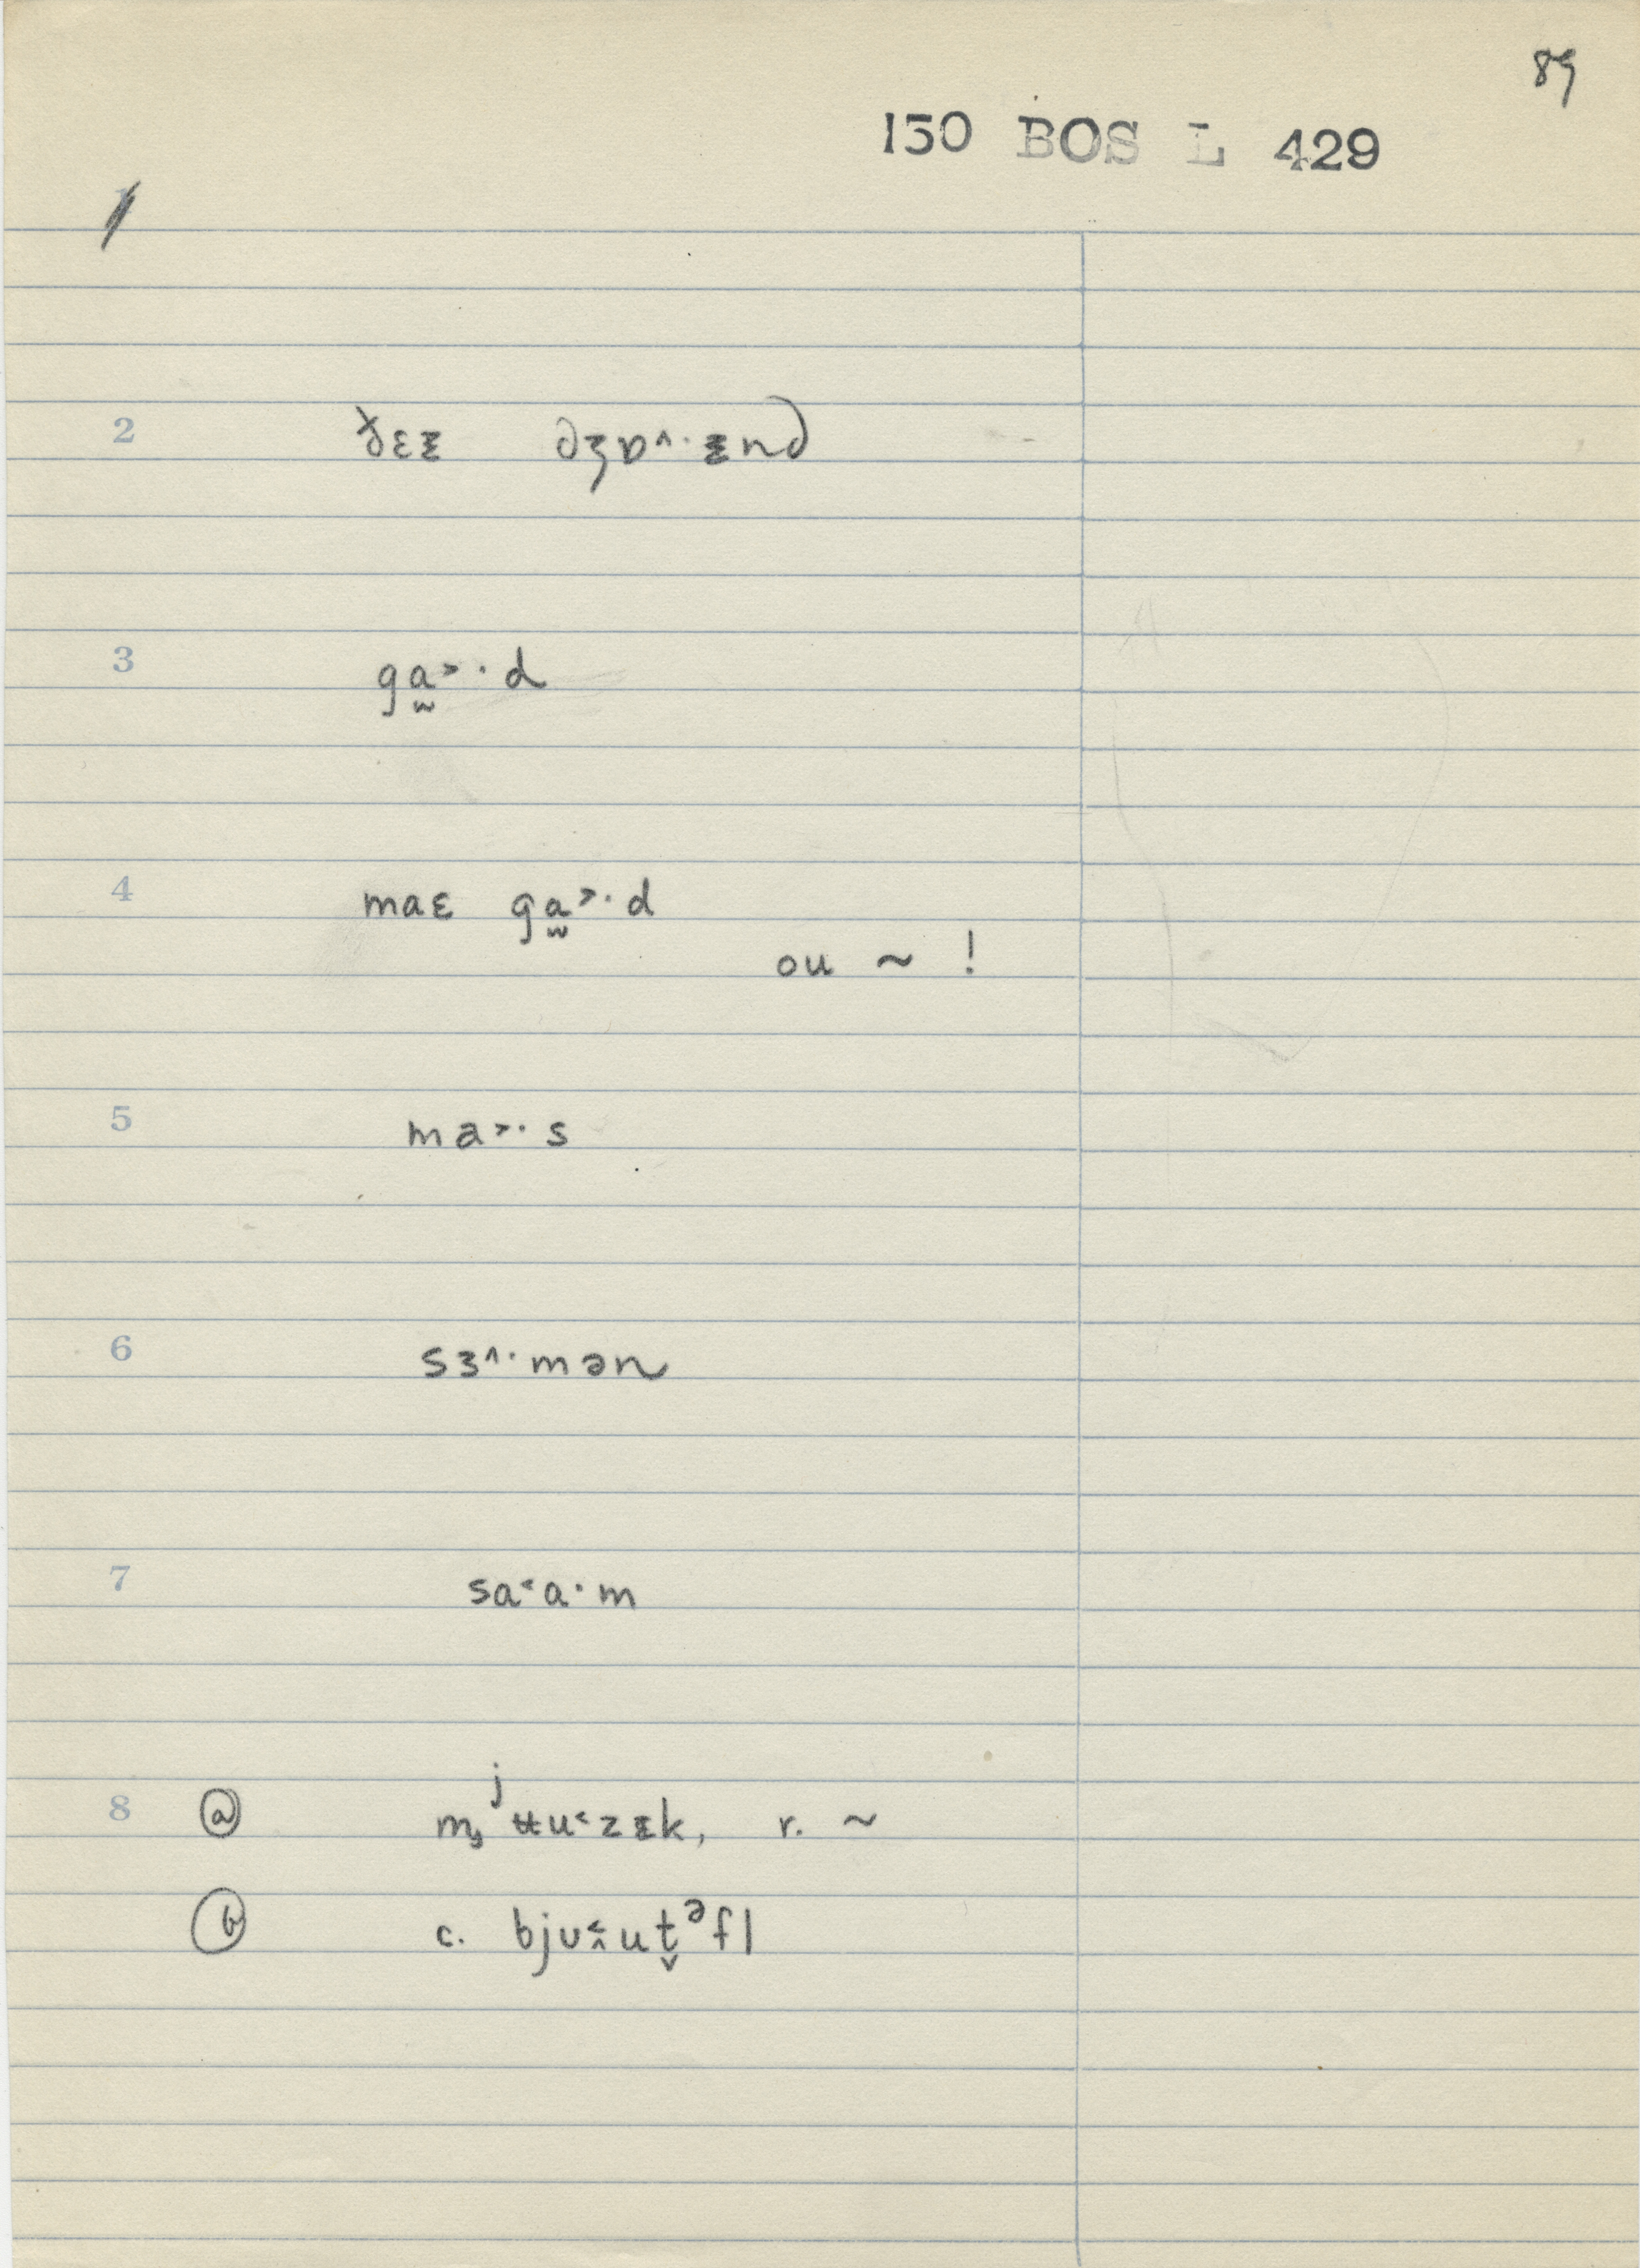 89
150 BOS L 429
1
2 ðɛᵻ ðʒɒ^·ᵻnd
3 ga̫˃·d
4 maɛ ga̫˃·d
ou ~ !
5 ma˃·s
6 sɜ^·mən
7 sa˂a·m
8 ⓐ mʲʉu˂zᵻk, r. ~
ⓑ c. bjʊ˂̭ut̬ᵊfl